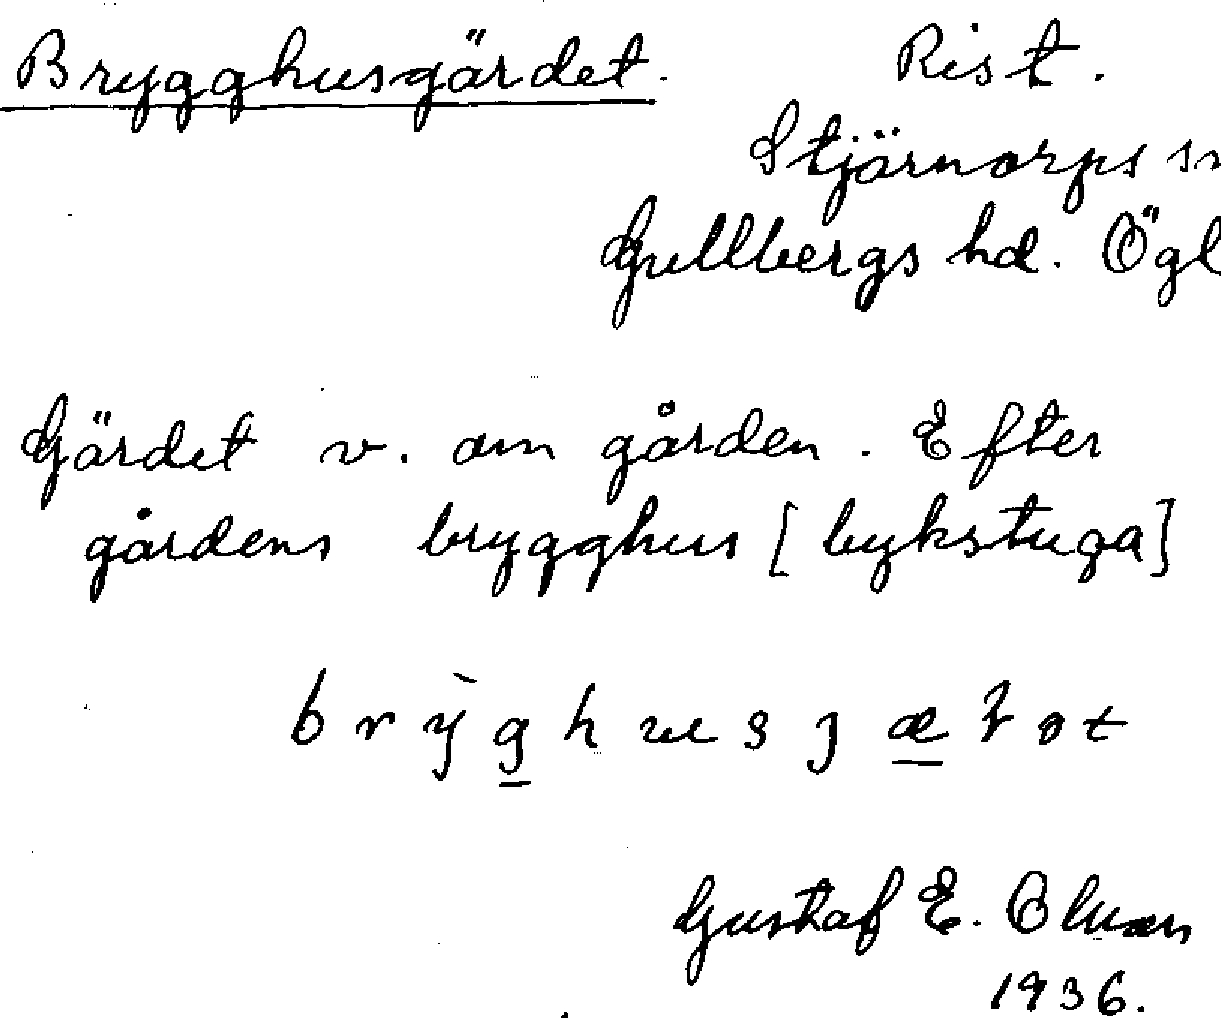 Brygghusgärdet. Rist.
Stjärnorps sn
Gullbergs hd. Ögl
Gärdet v. om gården. Efter
gårdens brygghus [bykstuga]
Gustaf E.
1936.